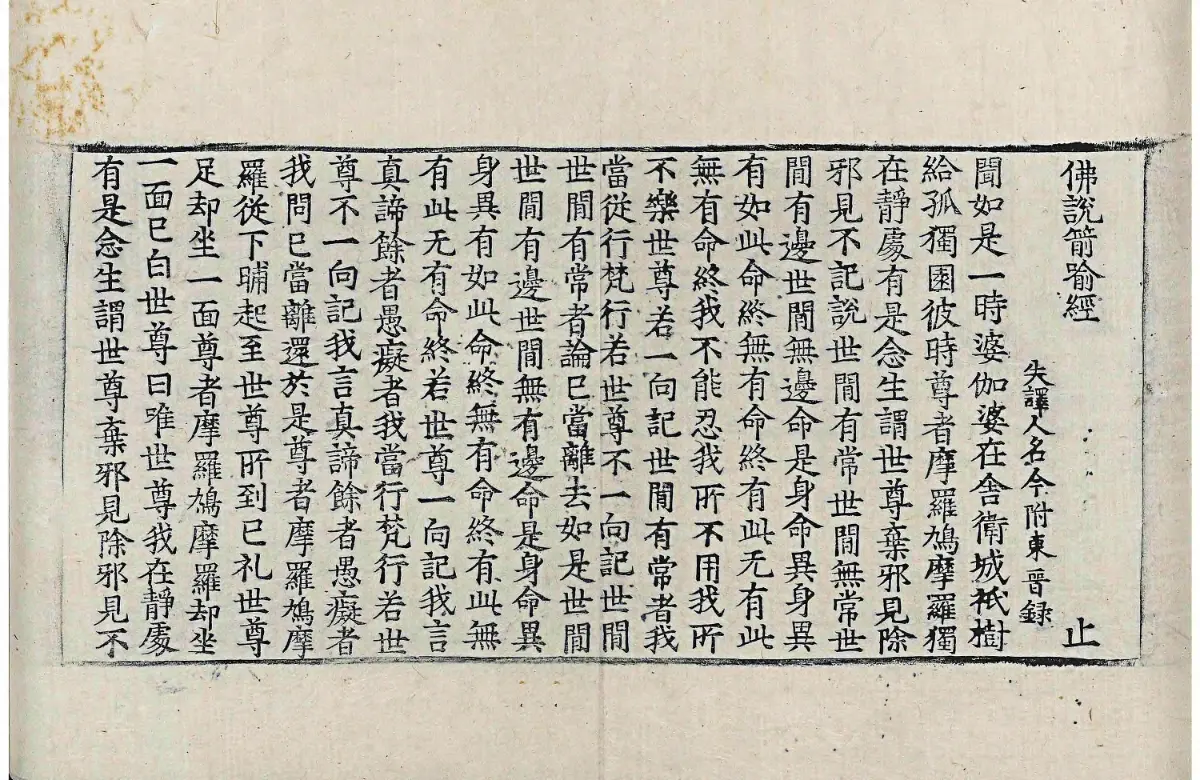 佛說箭喻經
止
失譯人名今附東晉錄
聞如是一時婆伽婆在舍衛城祇樹
給孤獨園彼時尊者摩羅鳩摩羅獨
在靜處有是念生謂世尊棄邪見除
邪見不記說世間有常世間無常世
間有邊世間無邊命是身命異身異
有如此命終無有命終有此无有此
無有命終我不能忍我所不用我所
不樂世尊若一向記世間有常者我
當從行梵行若世尊不一向記世間
世間有常者論已當離去如是世間
世間有邊世間無有邊命是身命異
身異有如此命終無有命終有此無
有此无有命終若世尊一向記我言
真諦餘者愚癡者我當行梵行若世
尊不一向記我言真諦餘者愚癡者
我問已當離還於是尊者摩羅鳩摩
羅從下晡起至世尊所到已礼世尊
足却坐一面尊者摩羅鳩摩羅却坐
一面已白世尊曰唯世尊我在靜處
有是念生謂世尊棄邪見除邪見不